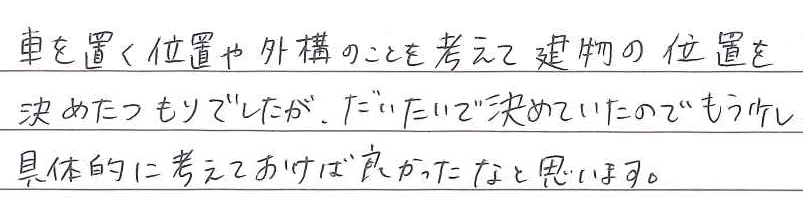 車を置く位置や外構のことを考えて建物の位置を
決めたつもりでしたが、だいたいで決めていたのでもう少し
具体的に考えておけば良かったなと思います。